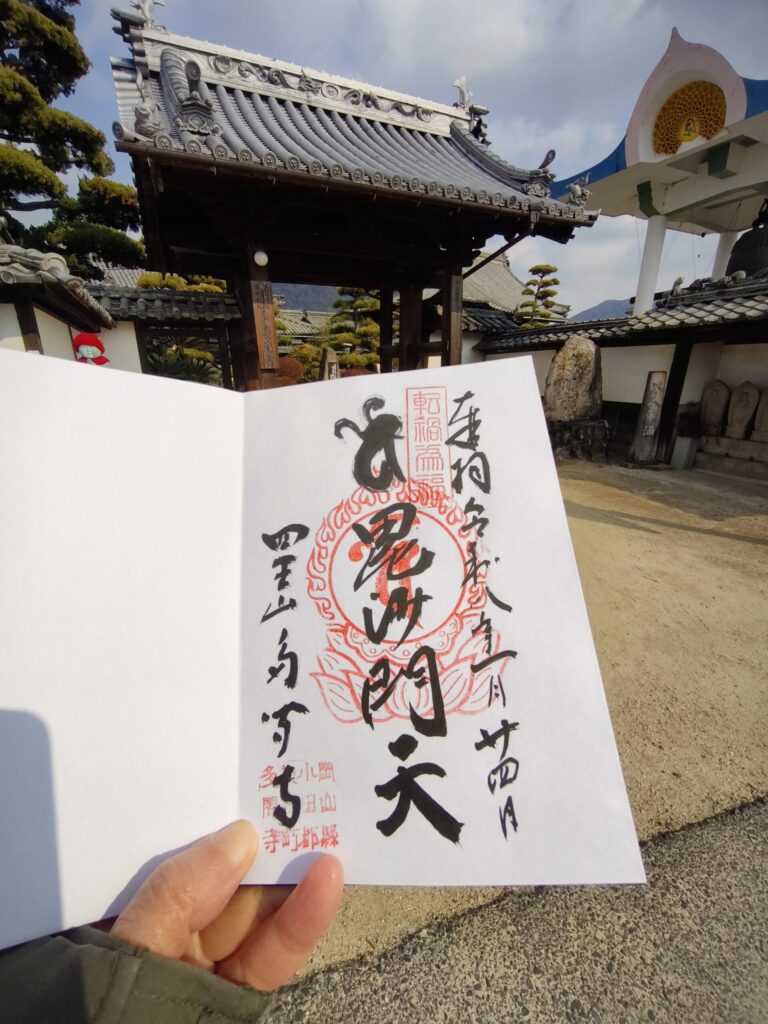 奉拝 令和八年一月廿四日
転禍為福
毘沙門天
四王山 多聞寺
岡山縣
小田郡
町
多聞寺